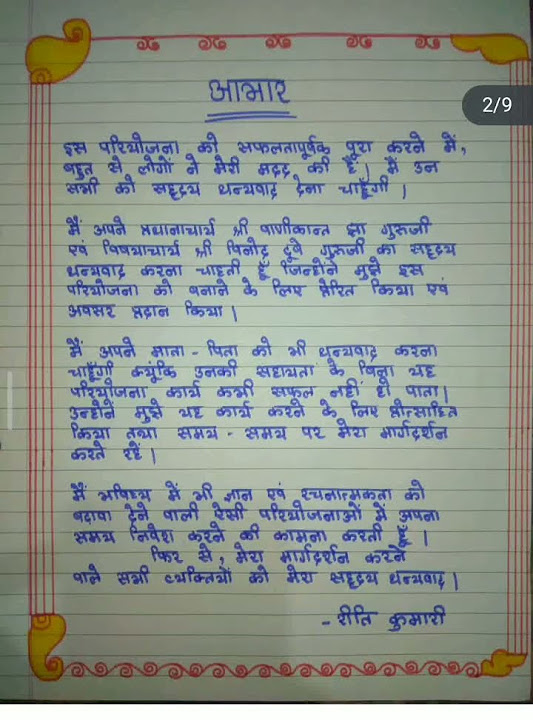 आभार
2/9
इस परियोजना को सफलतापूर्वक पूरा करने में,
बहुत से लोगों ने मेरी मदद की हैं। मैं उन
सभी को सहृदय धन्यवाद देना चाहूँगी।
मैं अपने प्रधानाचार्य श्री वाणीकान्त झा गुरुजी
एवं विषयाचार्य श्री विनोद दूबे गुरुजी का सहृदय
धन्यवाद करना चाहती हूँ जिन्होंने मुझे इस
परियोजना को बनाने के लिए प्रेरित किया एवं
अवसर प्रदान किया।
मैं अपने माता - पिता को भी धन्यवाद करना
चाहूँगी क्यूंकि उनकी सहायता के बिना यह
परियोजना कार्य कभी सफल नहीं हो पाता।
उन्होंने मुझे यह कार्य करने के लिए प्रोत्साहित
किया तथा समय - समय पर मेरा मार्गदर्शन
करते रहें।
मैं भविष्य में भी ज्ञान एवं रचनात्मकता को
बढ़ावा देने वाली ऐसी परियोजनाओं में अपना
समय निवेश करने की कामना करती हूँ।
फिर से, मेरा मार्गदर्शन करने
वाले सभी व्यक्तियों को मेरा सहृदय धन्यवाद।
- रीति कुमारी